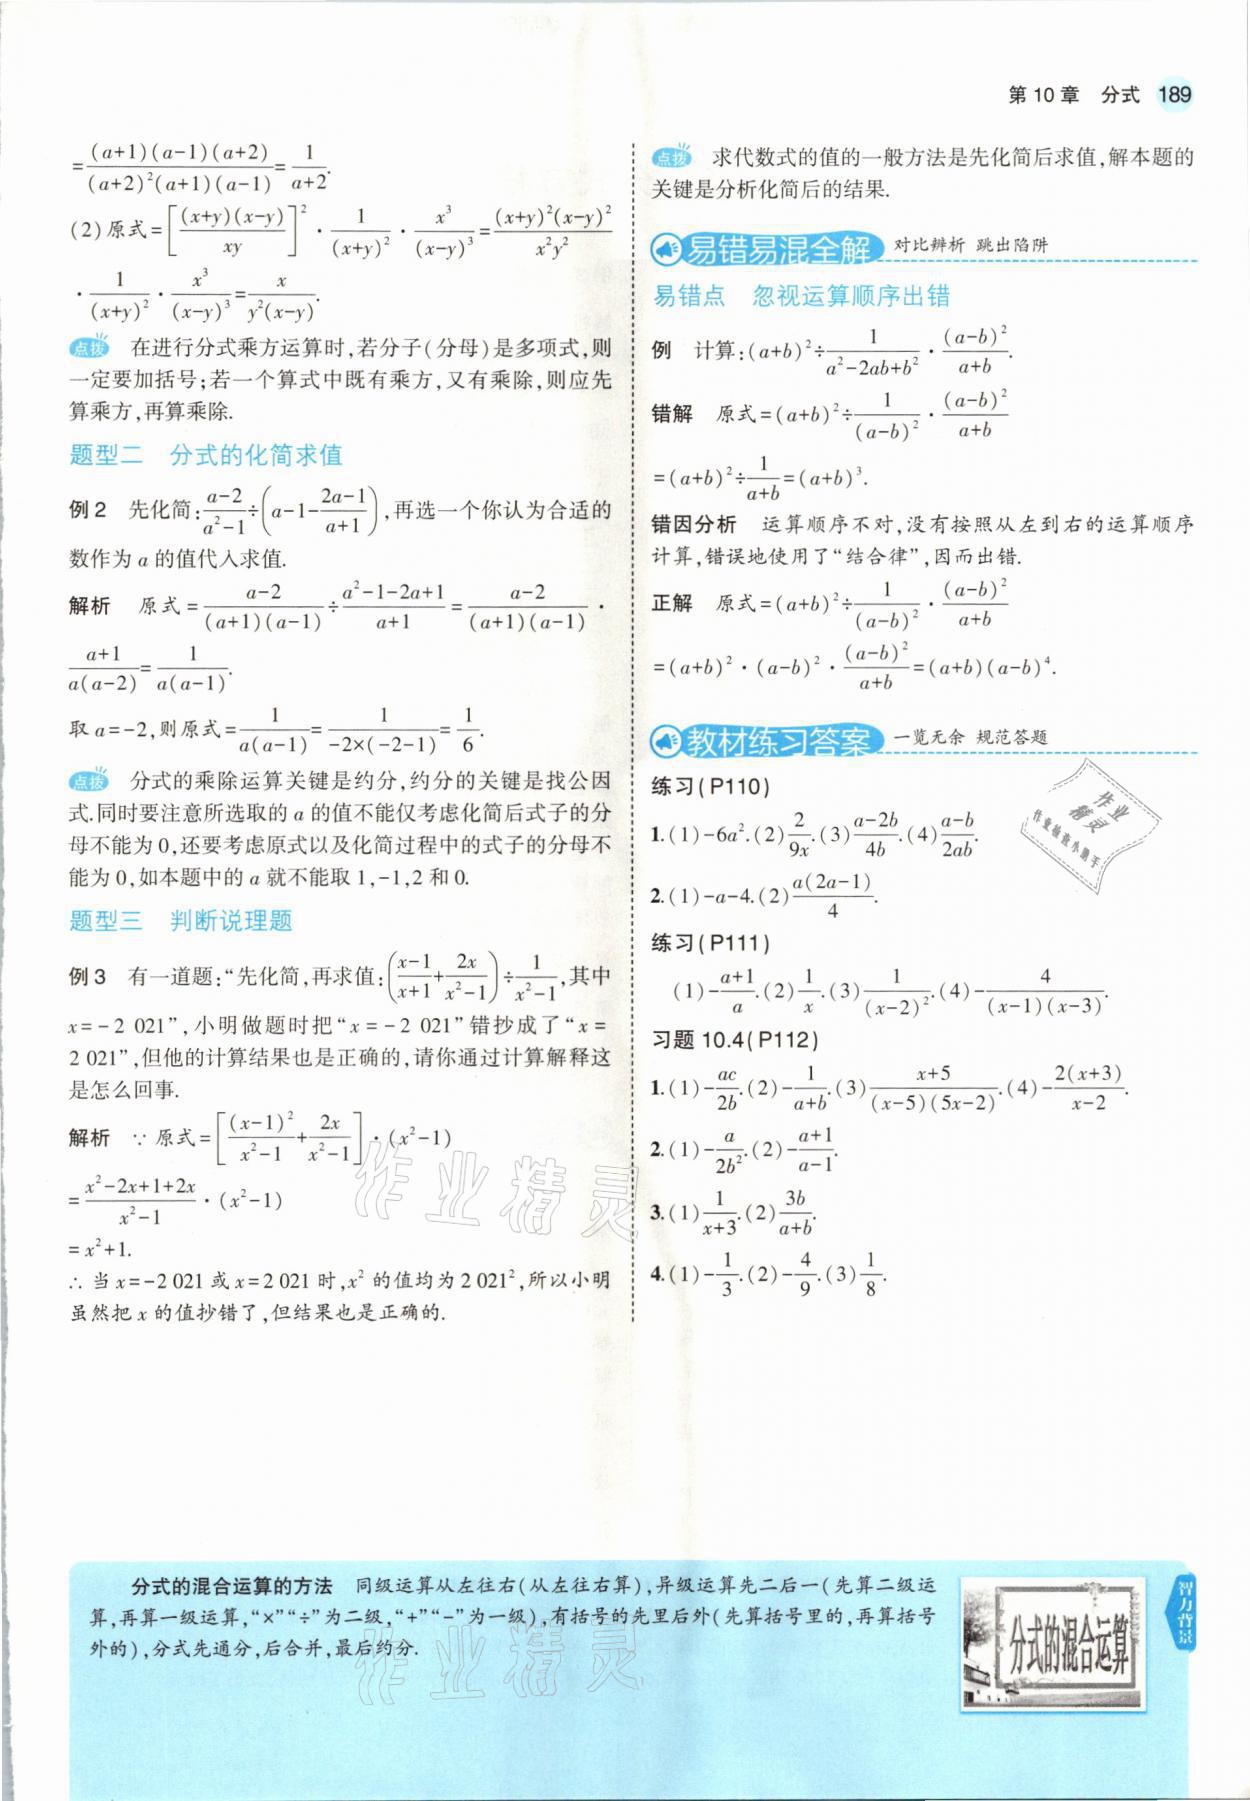 第10章 分式 189
=\frac{(a+1)(a-1)(a+2)}{(a+2)^2(a+1)(a-1)}=\frac{1}{a+2}.
(2)原式=[\frac{(x+y)(x-y)}{xy}]^2·\frac{1}{(x+y)^2}·\frac{x^3}{(x-y)^3}=\frac{(x+y)^2(x-y)^2}{x^2y^2}
·\frac{1}{(x+y)^2}·\frac{x^3}{(x-y)^3}=\frac{x}{y^2(x-y)}.
点拨 在进行分式乘方运算时,若分子(分母)是多项式,则
一定要加括号;若一个算式中既有乘方,又有乘除,则应先
算乘方,再算乘除.
题型二 分式的化简求值
例2 先化简:\frac{a-2}{a^2-1}÷(a-1-\frac{2a-1}{a+1}),再选一个你认为合适的
数作为a的值代入求值.
解析 原式=\frac{a-2}{(a+1)(a-1)}÷\frac{a^2-1-2a+1}{a+1}=\frac{a-2}{(a+1)(a-1)}·
\frac{a+1}{a(a-2)}=\frac{1}{a(a-1)}.
取a=-2,则原式=\frac{1}{a(a-1)}=\frac{1}{-2×(-2-1)}=\frac{1}{6}.
点拨 分式的乘除运算关键是约分,约分的关键是找公因
式.同时要注意所选取的a的值不能仅考虑化简后式子的分
母不能为0,还要考虑原式以及化简过程中的式子的分母不
能为0,如本题中的a就不能取1,-1,2和0.
题型三 判断说理题
例3 有一道题:“先化简,再求值:(\frac{x-1}{x+1}+\frac{2x}{x^2-1})÷\frac{1}{x^2-1},其中
x=-2 021”,小明做题时把“x=-2 021”错抄成了“x=
2 021”,但他的计算结果也是正确的,请你通过计算解释这
是怎么回事.
解析 ∵原式=[\frac{(x-1)^2}{x^2-1}+\frac{2x}{x^2-1}]·(x^2-1)
=\frac{x^2-2x+1+2x}{x^2-1}·(x^2-1)
=x^2+1.
∴当x=-2 021或x=2 021时,x^2的值均为2 021^2,所以小明
虽然把x的值抄错了,但结果也是正确的.
点拨 求代数式的值的一般方法是先化简后求值,解本题的
关键是分析化简后的结果.
易错易混全解 对比辨析 跳出陷阱
易错点 忽视运算顺序出错
例 计算:(a+b)^2÷\frac{1}{a^2-2ab+b^2}·\frac{(a-b)^2}{a+b}.
错解 原式=(a+b)^2÷\frac{1}{(a-b)^2}·\frac{(a-b)^2}{a+b}
=(a+b)^2÷\frac{1}{a+b}=(a+b)^3.
错因分析 运算顺序不对,没有按照从左到右的运算顺序
计算,错误地使用了“结合律”,因而出错.
正解 原式=(a+b)^2÷\frac{1}{(a-b)^2}·\frac{(a-b)^2}{a+b}
=(a+b)^2·(a-b)^2·\frac{(a-b)^2}{a+b}=(a+b)(a-b)^4.
教材练习答案 一览无余 规范答题
练习(P110)
1.(1)-6a^2.(2)\frac{2}{9x}.(3)\frac{a-2b}{4b}.(4)\frac{a-b}{2ab}.
2.(1)-a-4.(2)\frac{a(2a-1)}{4}.
练习(P111)
(1)-\frac{a+1}{a}.(2)\frac{1}{x}.(3)\frac{1}{(x-2)^2}.(4)-\frac{4}{(x-1)(x-3)}.
习题10.4(P112)
1.(1)-\frac{ac}{2b}.(2)-\frac{1}{a+b}.(3)\frac{x+5}{(x-5)(5x-2)}.(4)-\frac{2(x+3)}{x-2}.
2.(1)-\frac{a}{2b^2}.(2)-\frac{a+1}{a-1}.
3.(1)\frac{1}{x+3}.(2)\frac{3b}{a+b}.
4.(1)-\frac{1}{3}.(2)-\frac{4}{9}.(3)\frac{1}{8}.
作业精灵
作业检查小助手
作业精灵
分式的混合运算的方法 同级运算从左往右(从左往右算),异级运算先二后一(先算二级运
算,再算一级运算,“×”“÷”为二级,“+”“-”为一级),有括号的先里后外(先算括号里的,再算括号
外的),分式先通分,后合并,最后约分.
作业精灵
分式的混合运算
智力背景